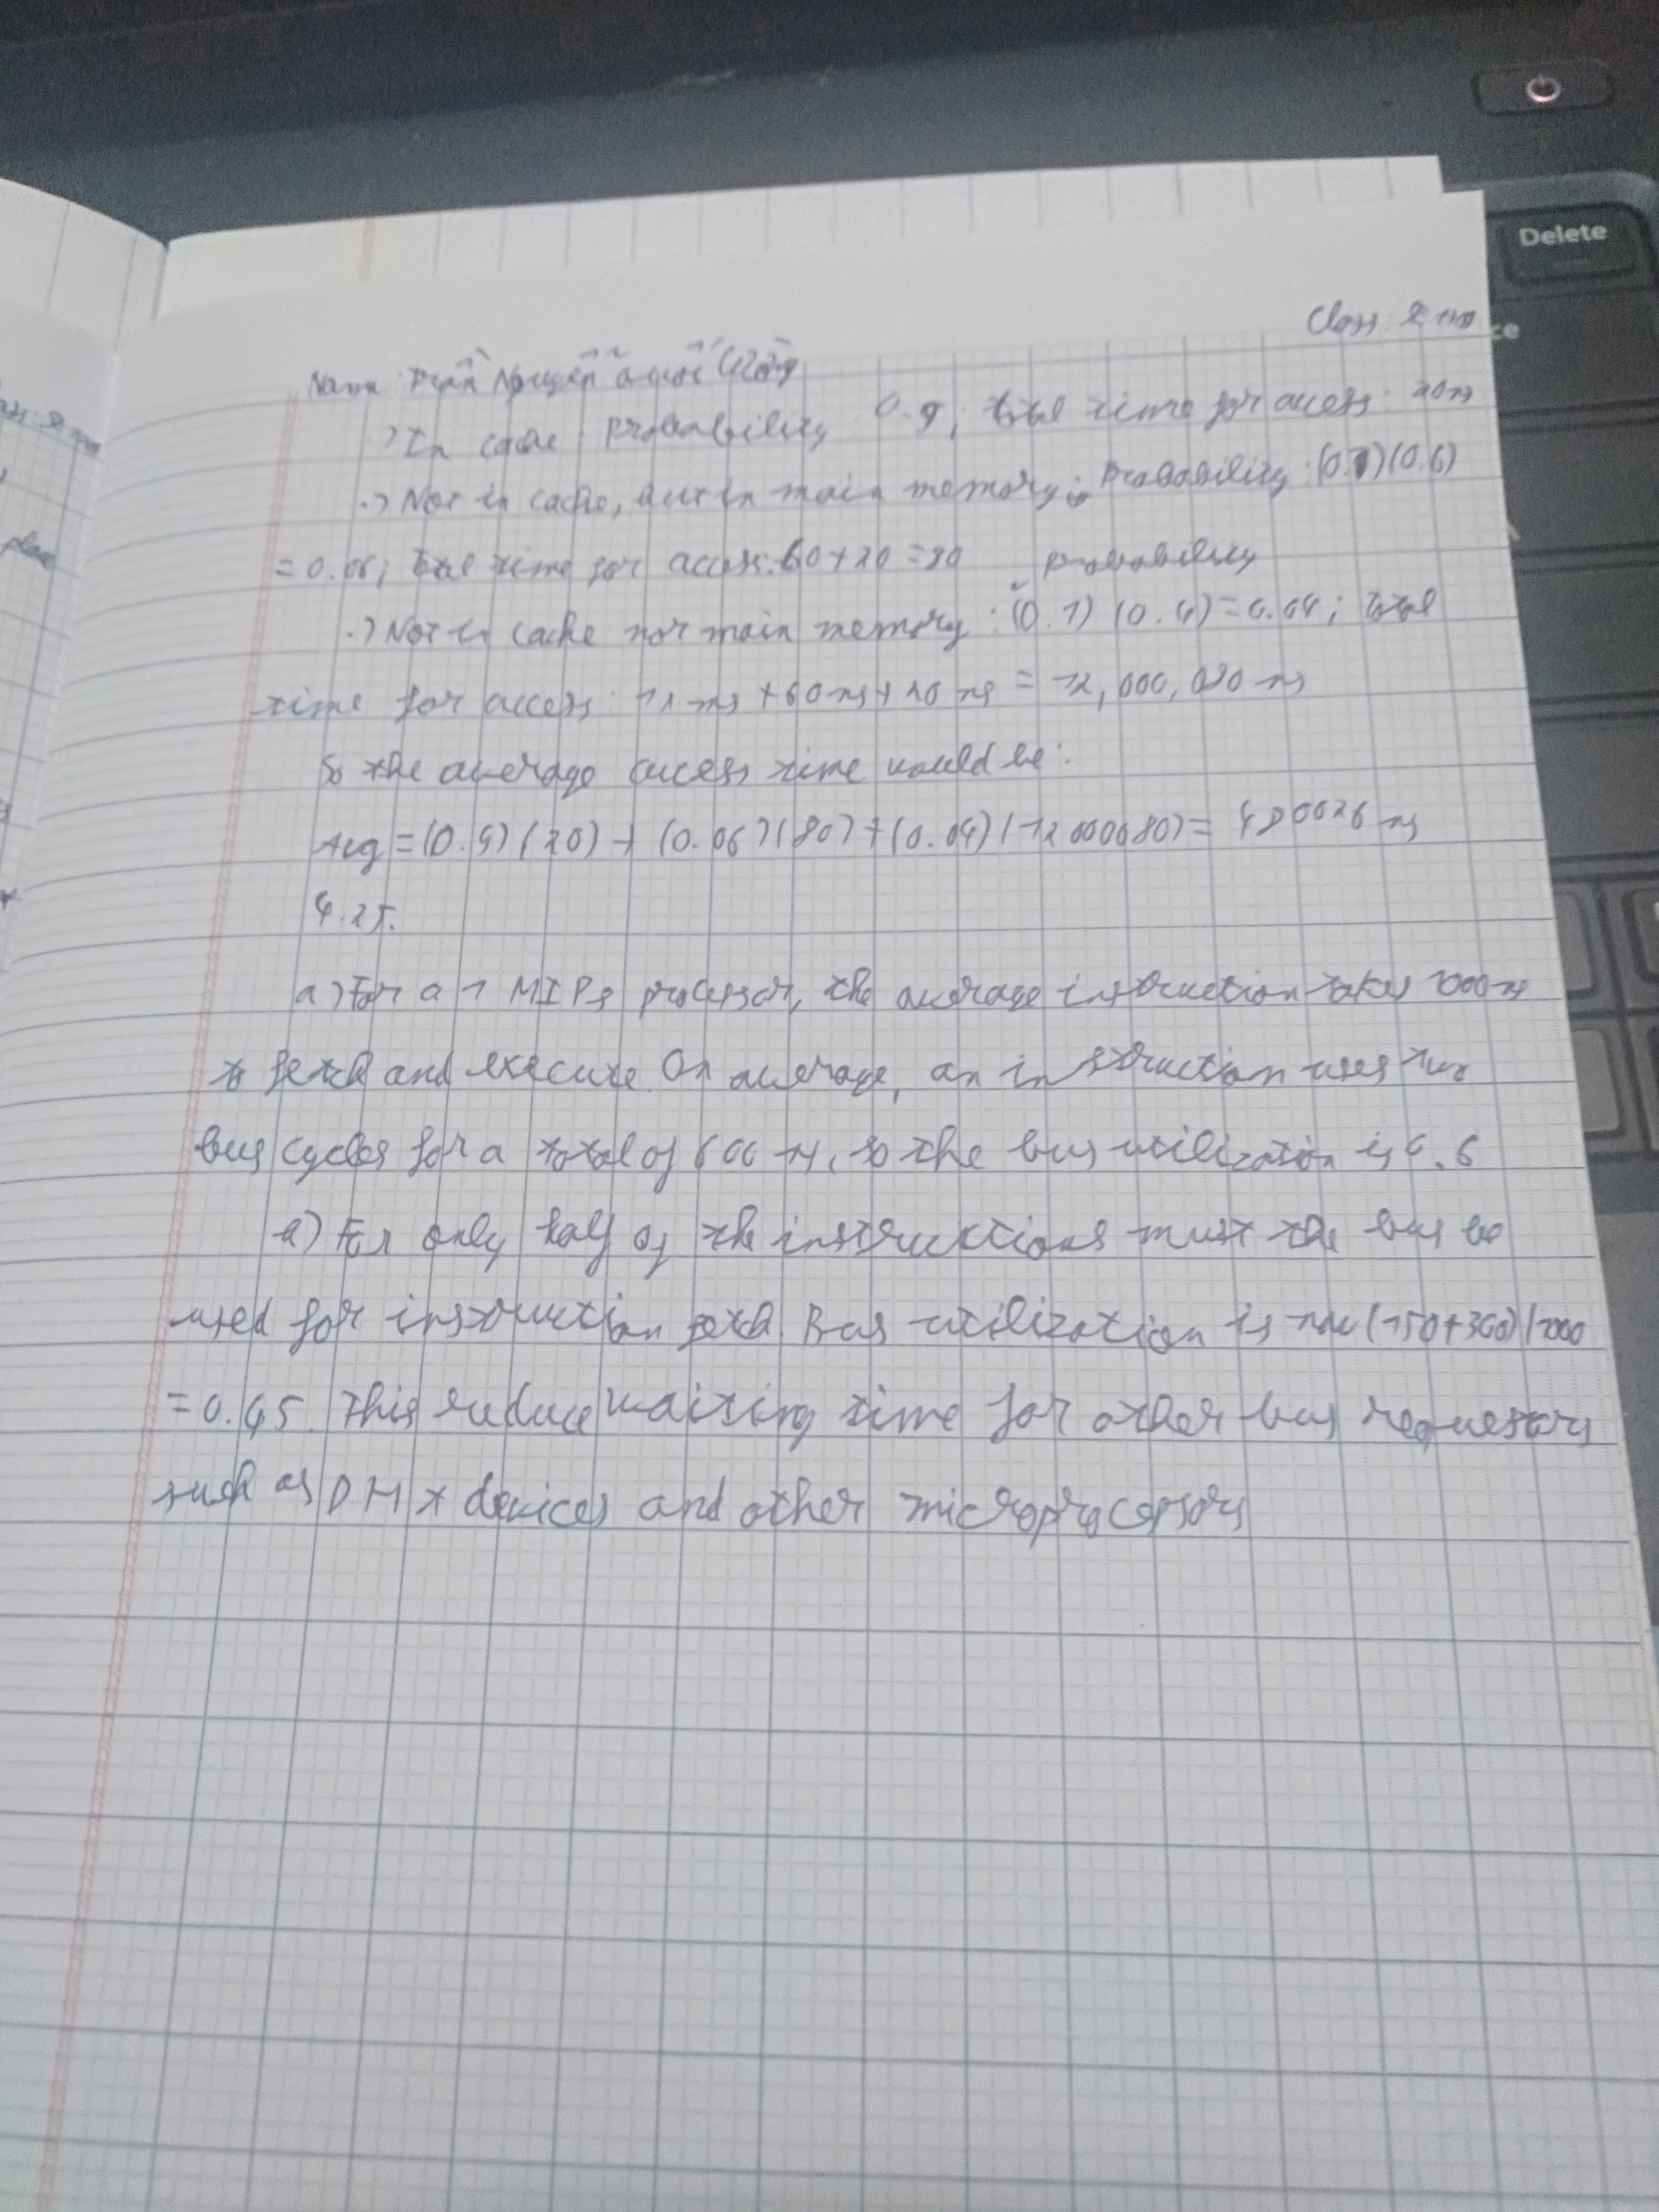 Delete
Class:
Name: Trần Nguyễn Quốc Cường
.) In cache probability 0.9; total time for access: 20ns
.) Not in cache, but in main memory; Probability: (0.1)(0.6)
= 0.06; total time for access: 60+20=80
probability
.) Not in cache nor main memory: (0.1) (0.4)=0.04; total
time for access: 12 ms +60ns+20 ns = 12,000,080 ns
So the average access time would be:
Avg = (0.9) (20) + (0.06)(80)+(0.04)(12000080)= 480026 ns
4.25.
a) For a 1 MIPs processor, the average instruction takes 1000ns
to fetch and execute. On average, an instruction uses two
bus cycles for a total of 600 ns, so the bus utilization is 0.6
a) For only half of the instructions must the bus be
used for instruction fetch. Bus utilization is now (150+300)/1000
=0.45. This reduce waiting time for other bus requestors
such as DMA devices and other microprocessors